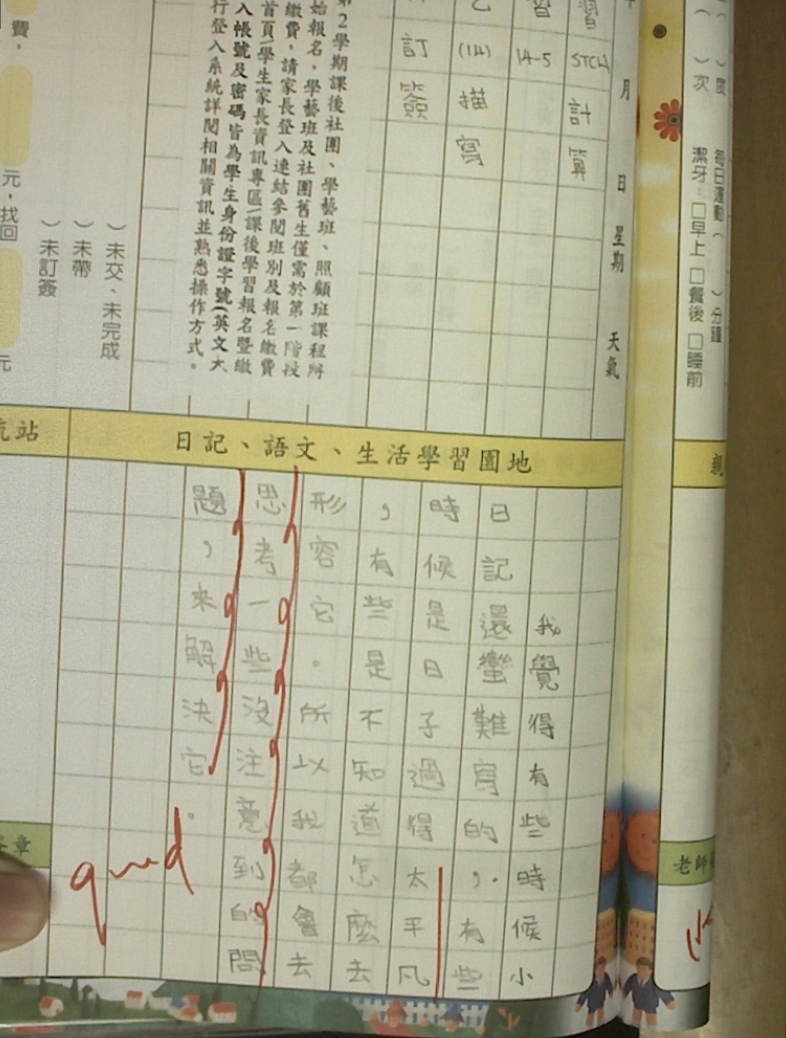 （ ）度
（ ）次
每日運動（ ）分鐘
潔牙：□早上 □餐後 □睡前
月 日 星期 天氣
習 STCH 計算
習 14-5
(14) 描寫
訂簽
第2學期課後社團、學藝班、照顧班課程開
始報名，學藝班及社團舊生僅需於第一階段
繳費，請家長登入連結參閱班別及報名繳費
首頁/學生家長資訊專區/課後學習報名暨繳
入帳號及密碼皆為學生身份證字號(英文大
行登入系統詳閱相關資訊並熟悉操作方式。
）未交、未完成
）未帶
）未訂簽
費，
元，找回
元
日記、語文、生活學習園地
站
我覺得有些時候小
日記還蠻難寫的，有些
時候是日子過得太平凡
，有些是不知道怎麼去
形容它。所以我都會去
思考一些沒注意到的問
題，來解決它。
good
章
老師